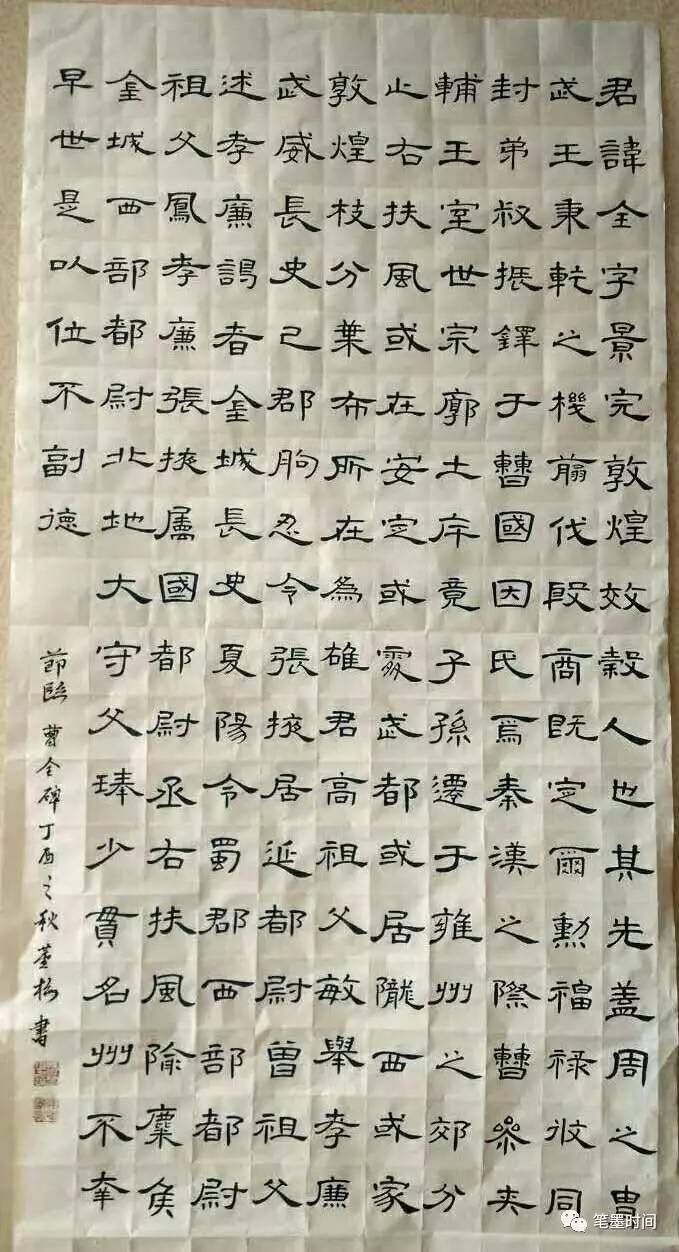 君諱全字景完敦煌效穀人也其先蓋周之冑
武王秉乾之機翦伐殷商既定爾勳福祿攸同
封弟叔振鐸于曹國因氏焉秦漢之際曹參夾
輔王室世宗廓土斥竟子孫遷于雍州之郊分
止右扶風或在安定或處武都或居隴西或家
敦煌枝分葉布所在為雄君高祖父敏舉孝廉
武威長史己郡朐忍令張掖居延都尉曾祖父
述孝廉謁者金城長史夏陽令蜀郡西部都尉
祖父鳳孝廉張掖屬國都尉丞右扶風隃麋侯
金城西部都尉北地大守父琫少貫名州不幸
早世是以位不副德
節臨曹全碑丁酉之秋董梅書
笔墨时间